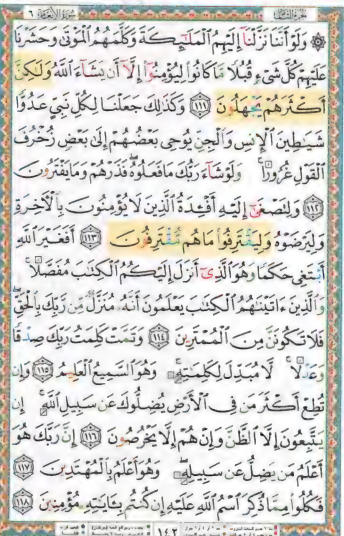 سُورَةُ الأَنْعَامِ ٦
۞ وَلَوْ أَنَّنَا نَزَّلْنَآ إِلَيْهِمُ ٱلْمَلَٰٓئِكَةَ وَكَلَّمَهُمُ ٱلْمَوْتَىٰ وَحَشَرْنَا
عَلَيْهِمْ كُلَّ شَىْءٍ قُبُلًا مَّا كَانُوا۟ لِيُؤْمِنُوٓا۟ إِلَّآ أَن يَشَآءَ ٱللَّهُ وَلَٰكِنَّ
أَكْثَرَهُمْ يَجْهَلُونَ ١١١ وَكَذَٰلِكَ جَعَلْنَا لِكُلِّ نَبِىٍّ عَدُوًّا
شَيَٰطِينَ ٱلْإِنسِ وَٱلْجِنِّ يُوحِى بَعْضُهُمْ إِلَىٰ بَعْضٍ زُخْرُفَ
ٱلْقَوْلِ غُرُورًا ۚ وَلَوْ شَآءَ رَبُّكَ مَا فَعَلُوهُ ۖ فَذَرْهُمْ وَمَا يَفْتَرُونَ
١١٢ وَلِتَصْغَىٰٓ إِلَيْهِ أَفْـِٔدَةُ ٱلَّذِينَ لَا يُؤْمِنُونَ بِٱلْـَٔاخِرَةِ
وَلِيَرْضَوْهُ وَلِيَقْتَرِفُوا۟ مَا هُم مُّقْتَرِفُونَ ١١٣ أَفَغَيْرَ ٱللَّهِ
أَبْتَغِى حَكَمًا وَهُوَ ٱلَّذِىٓ أَنزَلَ إِلَيْكُمُ ٱلْكِتَٰبَ مُفَصَّلًا ۚ
وَٱلَّذِينَ ءَاتَيْنَٰهُمُ ٱلْكِتَٰبَ يَعْلَمُونَ أَنَّهُۥ مُنَزَّلٌ مِّن رَّبِّكَ بِٱلْحَقِّ ۖ
فَلَا تَكُونَنَّ مِنَ ٱلْمُمْتَرِينَ ١١٤ وَتَمَّتْ كَلِمَتُ رَبِّكَ صِدْقًا
وَعَدْلًا ۚ لَّا مُبَدِّلَ لِكَلِمَٰتِهِۦ ۚ وَهُوَ ٱلسَّمِيعُ ٱلْعَلِيمُ ١١٥ وَإِن
تُطِعْ أَكْثَرَ مَن فِى ٱلْأَرْضِ يُضِلُّوكَ عَن سَبِيلِ ٱللَّهِ ۚ إِن
يَتَّبِعُونَ إِلَّا ٱلظَّنَّ وَإِنْ هُمْ إِلَّا يَخْرُصُونَ ١١٦ إِنَّ رَبَّكَ هُوَ
أَعْلَمُ مَن يَضِلُّ عَن سَبِيلِهِۦ ۖ وَهُوَ أَعْلَمُ بِٱلْمُهْتَدِينَ ١١٧
فَكُلُوا۟ مِمَّا ذُكِرَ ٱسْمُ ٱللَّهِ عَلَيْهِ إِن كُنتُم بِـَٔايَٰتِهِۦ مُؤْمِنِينَ ١١٨
١٤٢